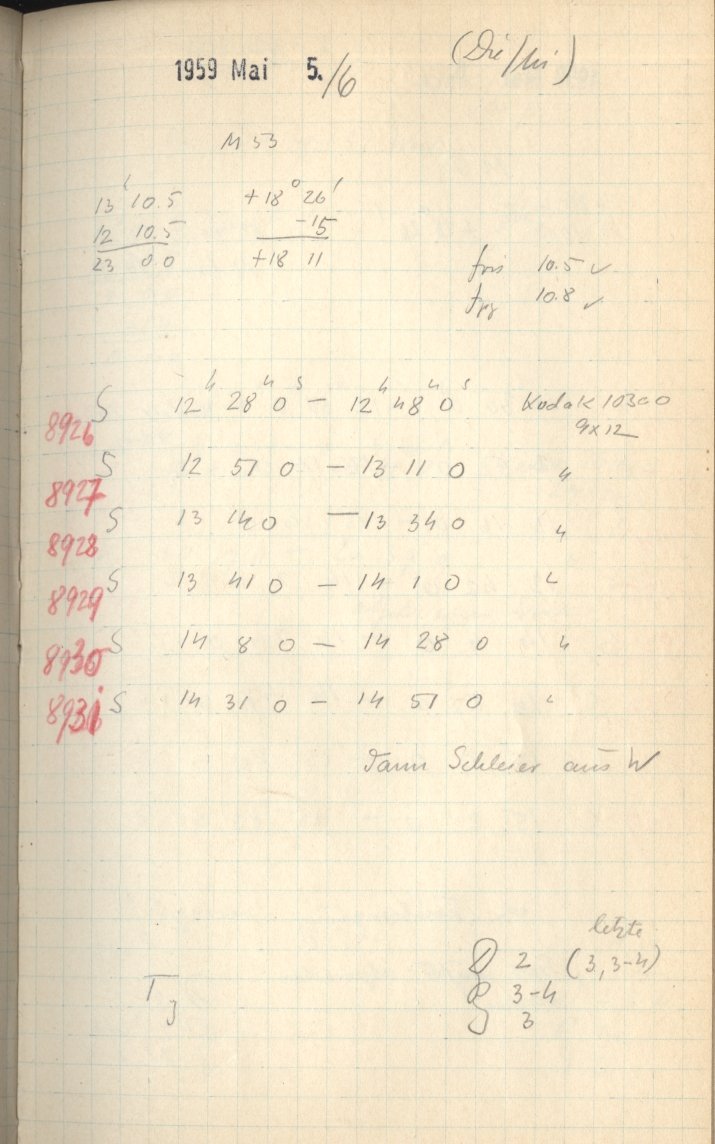 1959 Mai 5./6 (Die/Mi)
M 53
13 10.5 +18° 26'
12 10.5 -15
23 0.0 +18 11
10.5 ✓
10.8 ✓
S 12 28 0 - 12 48 0 Kodak 103a0
8926 9x12
S 12 51 0 - 13 11 0 "
8927
S 13 14 0 - 13 34 0 "
8928
S 13 41 0 - 14 1 0 "
8929
S 14 8 0 - 14 28 0 "
8930
S 14 31 0 - 14 51 0 "
8931
Dann Schleier aus W
letzte
2 (3, 3-4)
3-4
T3
3